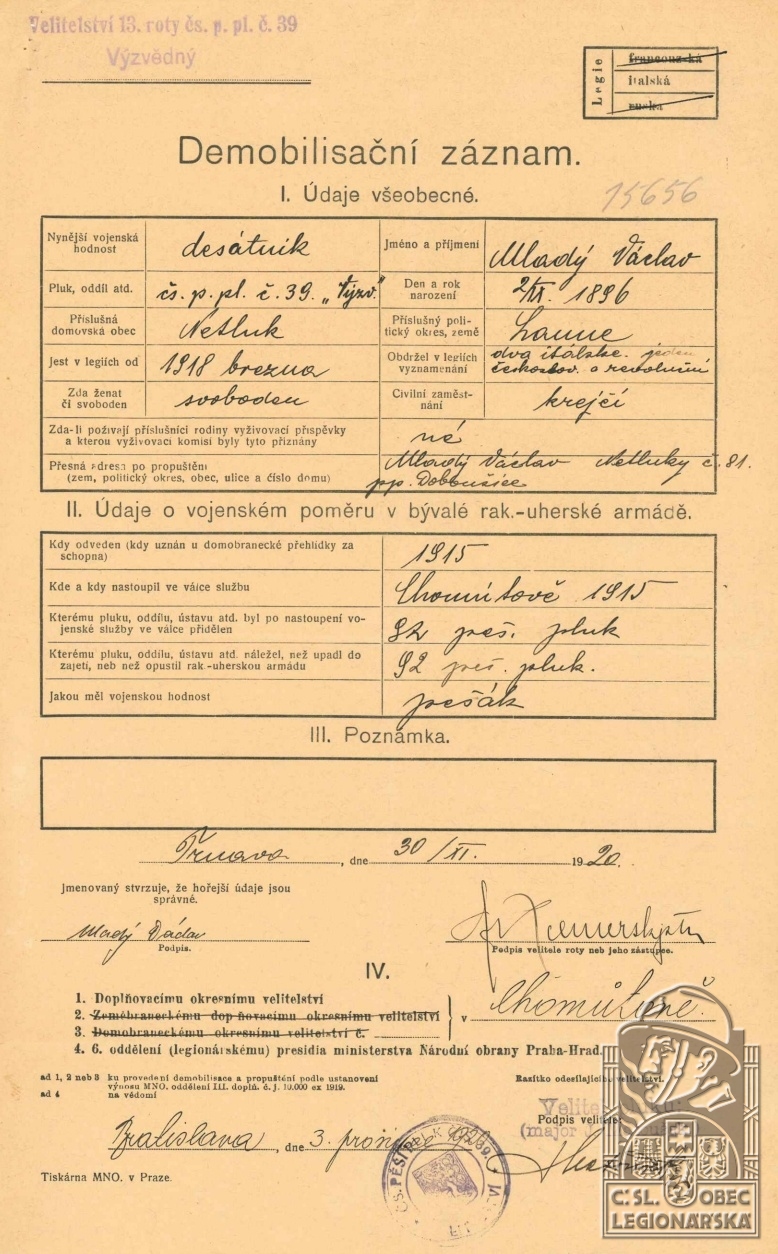 Velitelství 13. roty čs. p. pl. č. 39
Výzvědný
Legie
francouzská
italská
ruská
Demobilisační záznam.
15656
I. Údaje všeobecné.
Nynější vojenská hodnost
desátník
Jméno a příjmení
Mladý Václav
Pluk, oddíl atd.
čs. p. pl. č. 39. „Výzv."
Den a rok narození
2/IX. 1896
Příslušná domovská obec
Netluk
Příslušný politický okres, země
Laune
Jest v legiích od
1918 března
Obdržel v legiích vyznamenání
dva itálske. jeden
českoslov. a revoluční
Zda ženat či svoboden
svoboden
Civilní zaměstnání
krejčí
Zda-li požívají příslušníci rodiny vyživovací příspěvky
a kterou vyživovací komisí byly tyto přiznány
né
Přesná adresa po propuštění
(zem, politický okres, obec, ulice a číslo domu)
Mladý Václav Netluky č. 81.
II. Údaje o vojenském poměru v bývalé rak.-uherské armádě.
Kdy odveden (kdy uznán u domobranecké přehlídky za
schopna)
1915
Kde a kdy nastoupil ve válce službu
Chomútově 1915
Kterému pluku, oddílu, ústavu atd. byl po nastoupení vo-
jenské služby ve válce přidělen
92 peš. pluk
Kterému pluku, oddílu, ústavu atd. náležel, než upadl do
zajetí, neb než opustil rak.-uherskou armádu
92 peš. pluk.
Jakou měl vojenskou hodnost
pešák
III. Poznámka.
Trnava, dne 30/XI. 1920.
Jmenovaný stvrzuje, že hořejší údaje jsou
správné.
Mladý Václav
Podpis.
Podpis velitele roty neb jeho zástupce.
IV.
1. Doplňovacímu okresnímu velitelství
2. Zeměbraneckému doplňovacímu okresnímu velitelství
3. Domobraneckému okresnímu velitelství č.
v Chomútově.
4. 6. oddělení (legionářskému) presidia ministerstva Národní obrany Praha-Hrad.
ad 1, 2 neb 3 ku provedení demobilisace a propuštění podle ustanovení
výnosu MNO. oddělení III. doplň. č. j. 10.000 ex 1919.
ad 4 na vědomí
Razítko odesílajícího velitelství.
Podpis velitele
(major
Bratislava, dne 3. prosince 1920.
Tiskárna MNO. v Praze.
Č. SL. OBEC
LEGIONÁŘSKÁ